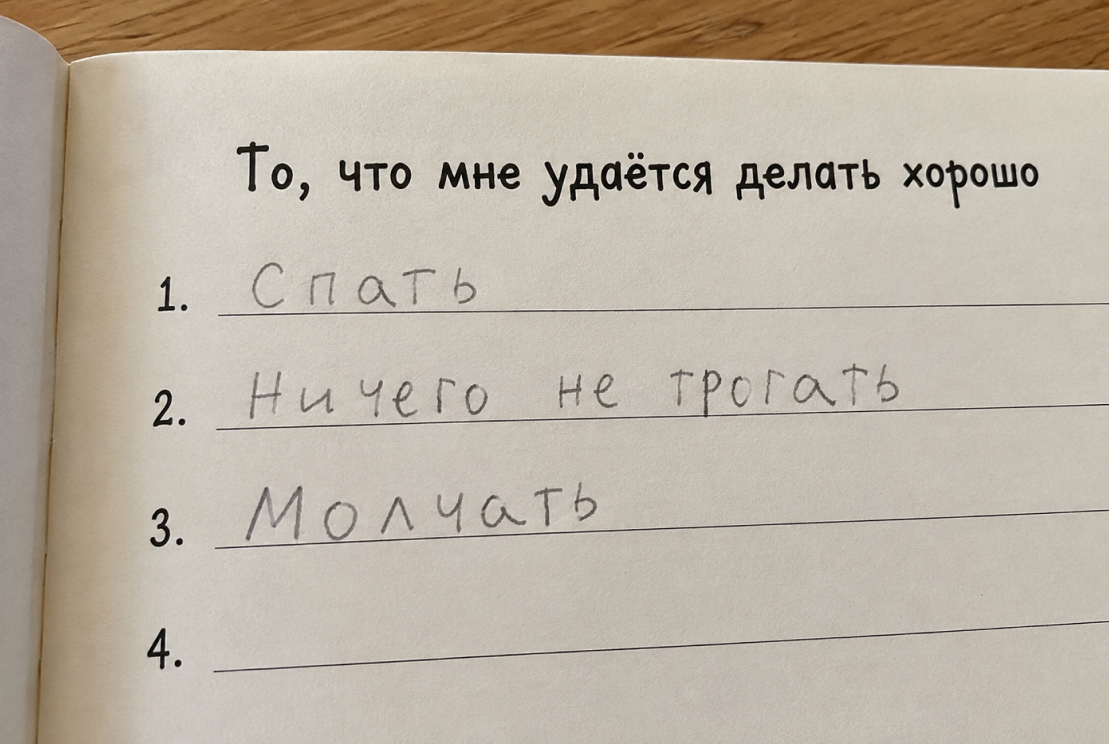 То, что мне удаётся делать хорошо
1. Спать
2. Ничего не трогать
3. Молчать
4.